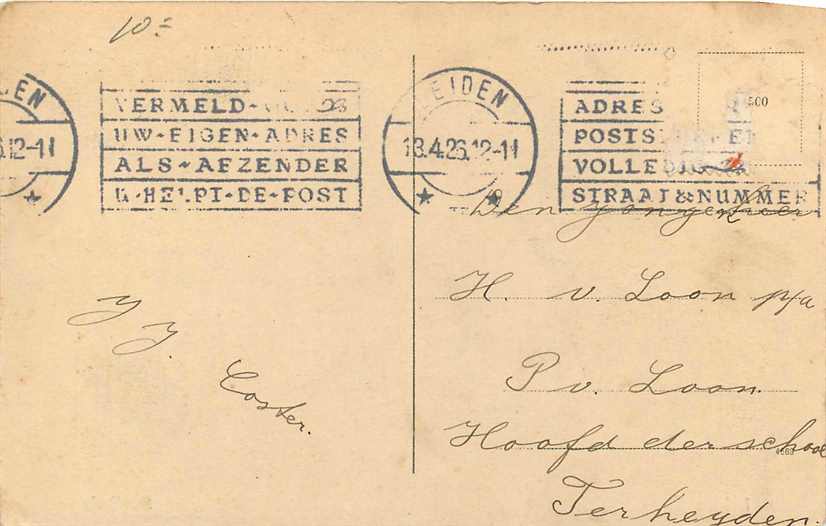 10=
EIDEN
6.12-11
VERMELD
UW-EIGEN-ADRES
ALS-AFZENDER
U-HELPT-DE-POST
LEIDEN
13.4.26.12-11
ADRES
POSTS
VOLLEDIG
STRAAT & NUMMER
500
Den Jongeheer
H. v. Loon p/a
P. v. Loon
Hoofd der school
Terheyden.
Coster.